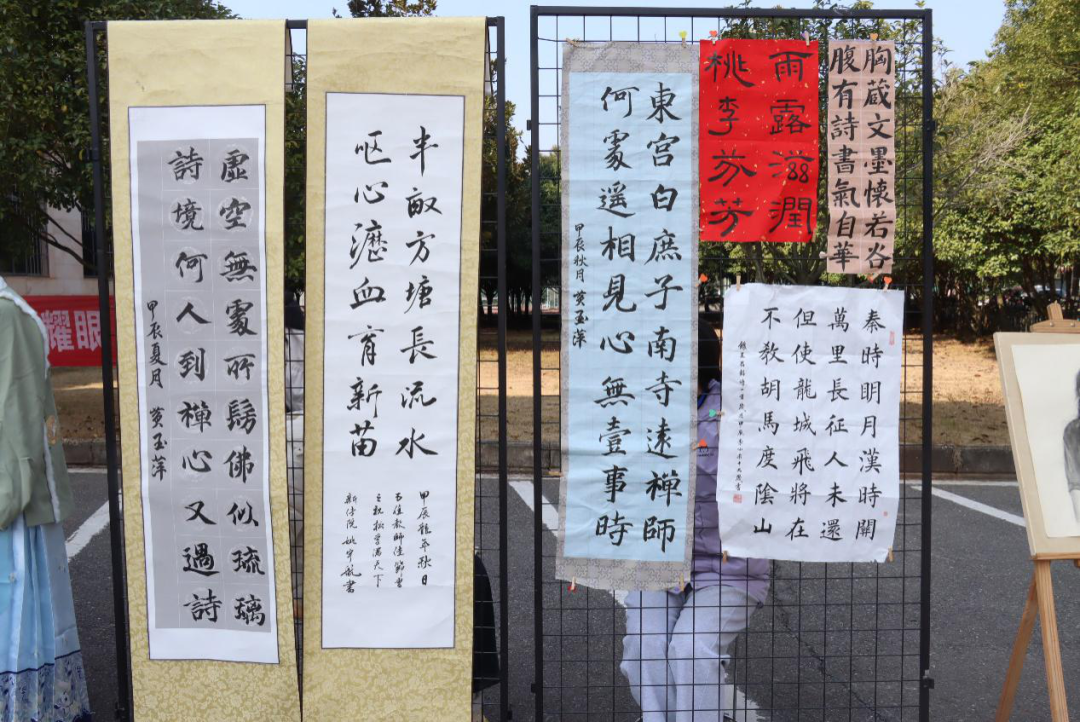 耀眼
虛空無處所髣佛似琉璃
詩境何人到禪心又過詩
甲辰夏月 黄玉萍
半畝方塘長流水
呕心瀝血育新苗
甲辰龍年秋日
教師佳節
满天下
新传院姚宇航書
東宮白庶子南寺遠禪師
何處遥相見心無壹事時
甲辰秋月 黄玉萍
雨露滋潤
桃李芬芳
胸蔵文墨懷若谷
腹有詩書氣自華
秦時明月漢時關
萬里長征人未還
但使龍城飛將在
不敎胡馬度陰山